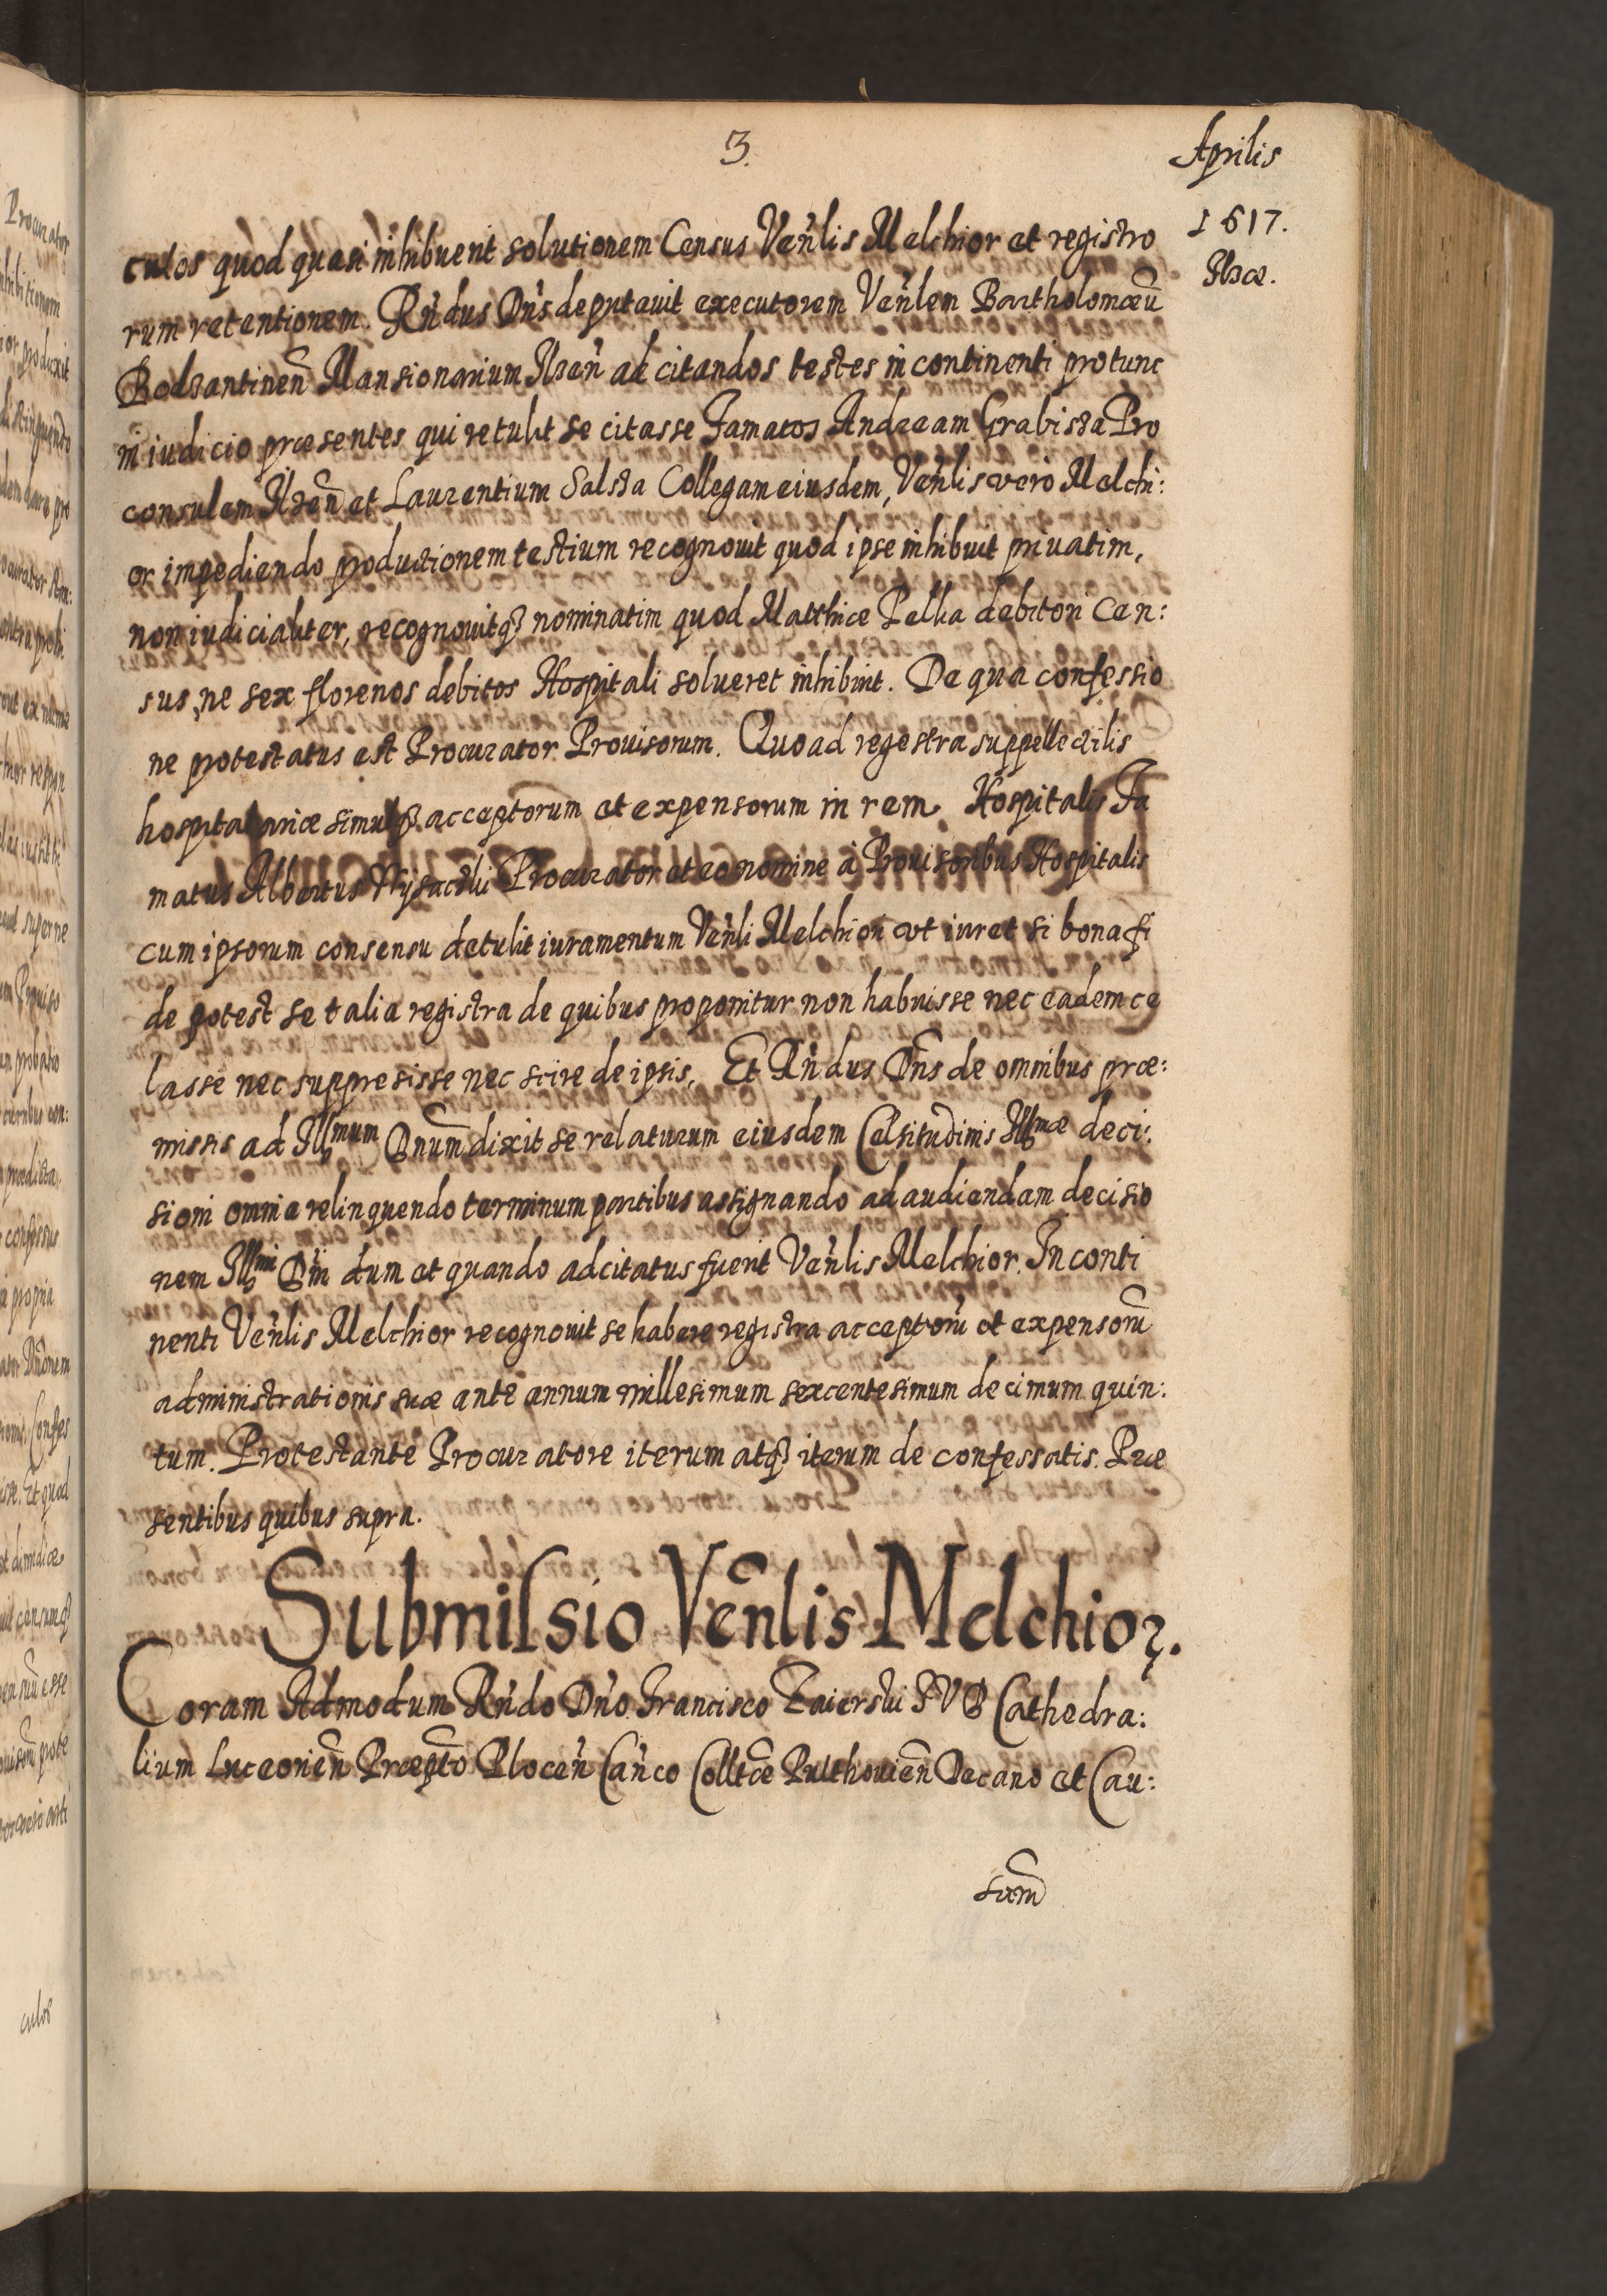 3.
Aprilis
1617.
Ilzæ.
culos quod quasi inhibuerit solutionem Census Ven̄lis Melchior et registro
rum retentionem. Rn̄dus Dn̄s deputavit executorem Ven̄lem Bartholomæū
Bodzantinen̄ Mansionarium Ilzen̄ ad citandos testes in continenti protunc
in iudicio præsentes, qui retulit se citasse Famatos Andream Grabisza Pro
consulem Ilzen̄ et Laurentium Salsza Collegam eiusdem, Ven̄lis vero Melchi:
or impediendo productionem testium recognouit quod ipse inhibuit priuatim,
non iudicialiter, recognouitq₃ nominatim quod Matthiæ Pella debitori Cen:
sus, ne sex florenos debitos Hospitali solueret inhibuit. De qua confessio
ne protestatus est Procurator Prouisorum. Quoad regestra suppellectilis
hospitalariæ simulq₃ acceptorum et expensorum in rem Hospitalis Fa
matus Albertus Procurator et eo nomine à Prouisoribus Hospitalis
cum ipsorum consensu detulit iuramentum Ven̄li Melchiori vt iuret si bona fi
de potest se talia registra de quibus proponitur non habuisse nec eadem ce
lasse nec suppressisse nec scire de ipsis, Et Rn̄dus Dn̄s de omnibus præ:
missis ad Illmum Dnum̄ dixit se relaturum eiusdem Celsitudinis Illmæ deci:
sioni omnia relinquendo terminum partibus assignando ad audiendam decisio
nem Illmi Dn̄i dum et quando adcitatus fuerit Ven̄lis Melchior. In conti
nenti Ven̄lis Melchior recognouit se habere registra acceptorū et expensorū
administrationis suæ ante annum millesimum sexcentesimum decimum quin:
tum. Protestante Procuratore iterum atq₃ iterum de confessatis. Præ
sentibus quibus supra.
Submissio Ven̄lis Melchior.
Coram Admodum Rn̄do Dn̄o Francisco Zaierski IVD Cathedra:
lium Luceorien̄ Præpto Plocen̄ Can̄co Colltæ Pulthouien̄ Decano et Cau:
sarū